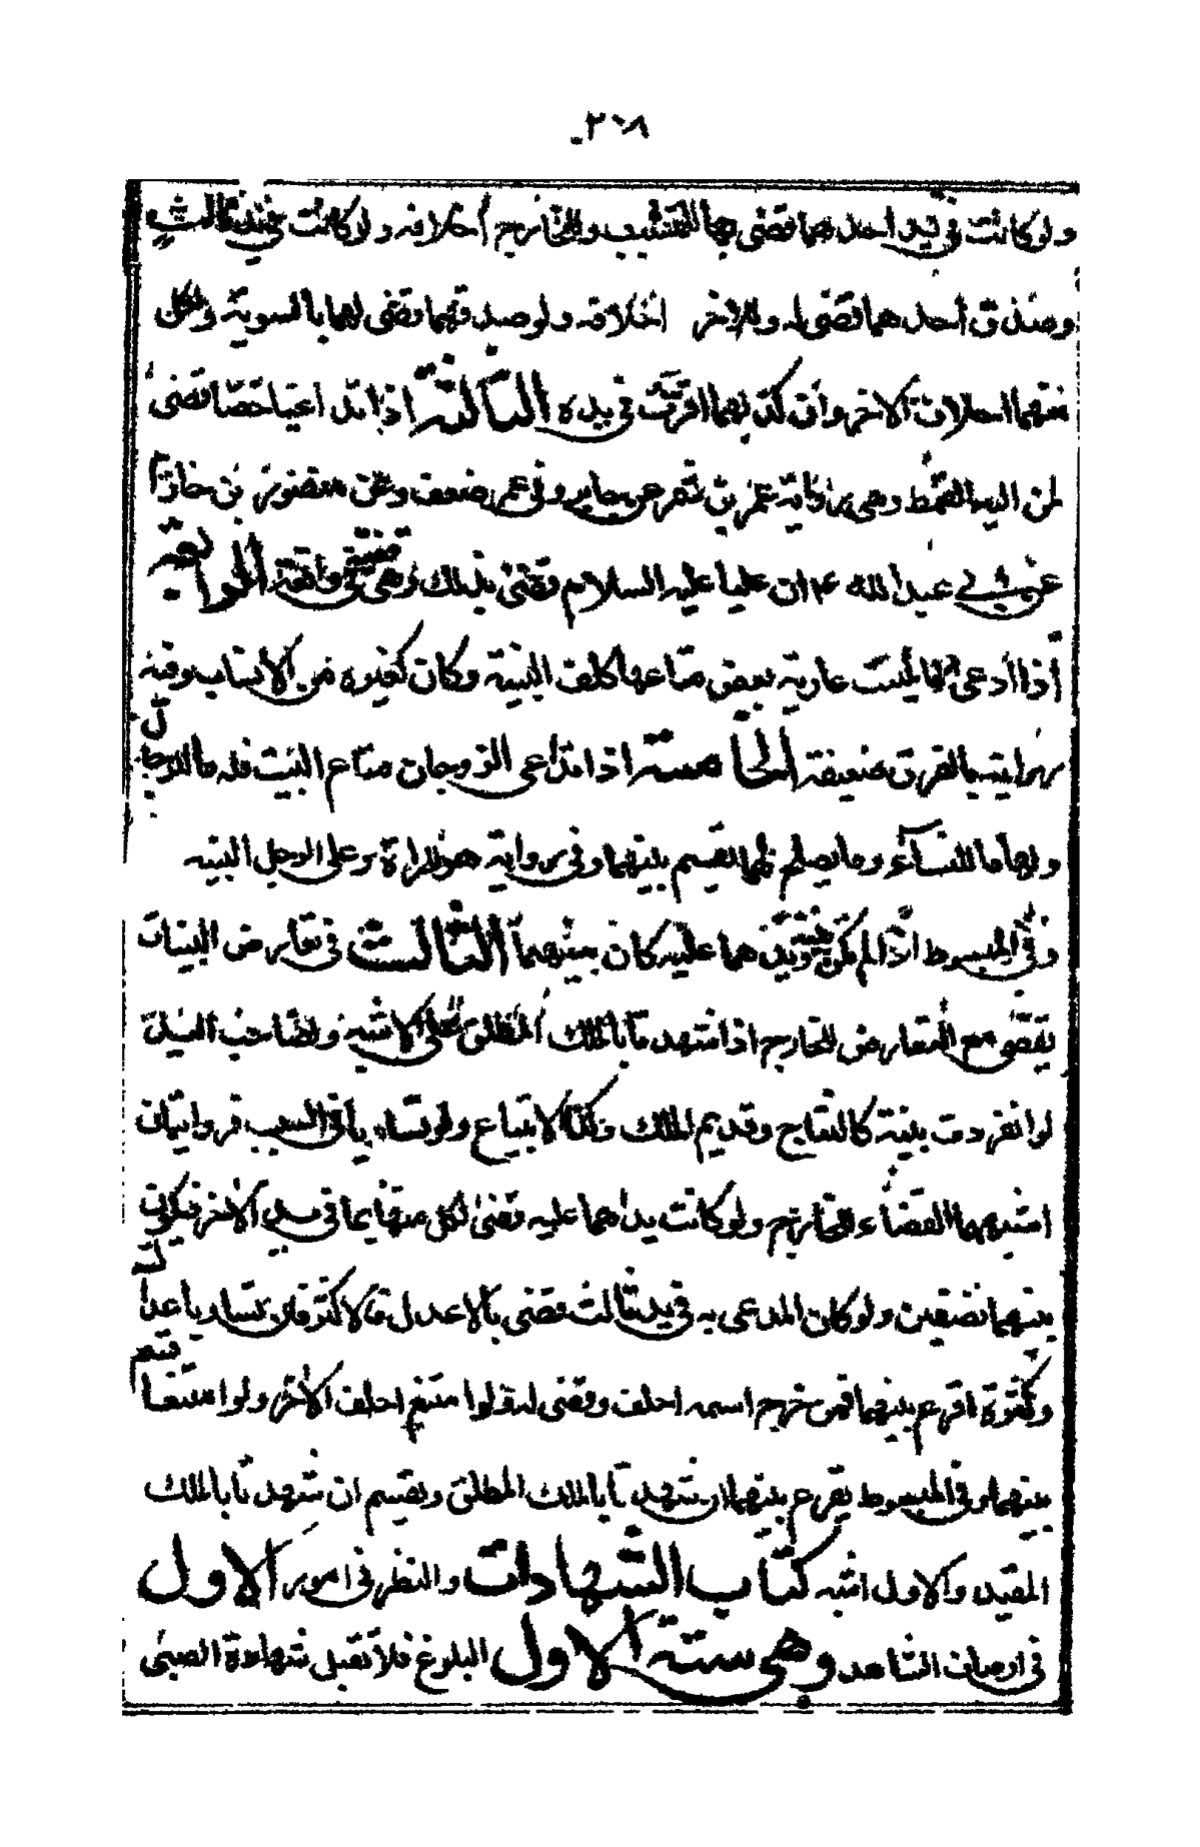 ٣٦٨
ولو كانت في يد احدهما قضي بها للمتشبث وللخارج احلافه ولو كانت في يد ثالث
وصدق احدهما قضي له وللاخر احلافه ولو صدقهما قضي لهما بالسوية ولكل
منهما احلاف الاخر وان كذبهما اقرت في يده الثالثة اذا تداعيا خصا قضي
لمن اليه القمط وهي رواية عمرو بن شمر عن جابر وفي عمرو ضعف وعن منصور بن حازم
عن ابي عبد الله ع ان عليا عليه السلام قضى بذلك وهي قضية في واقعة الرابعة
اذا ادعى ابو الميتة عارية بعض متاعها كلف البينة وكان كغيره من الانساب وفيه
رواية بالفرق ضعيفة الخامسة اذا تداعى الزوجان متاع البيت فله ما للرجال
ولها ما للنساء وما يصلح لهما يقسم بينهما وفي رواية هو للمراة وعلى الرجل البينة
وفي المبسوط اذا لم تكن بينة ويدهما عليه كان بينهما الثالث في تعارض البينات
يقضى مع التعارض للخارج اذا شهدتا بالملك المطلق على الاشبه ولصاحب اليد
لو انفردت بينته كالنتاج وقديم الملك وكذا الابتياع ولو تساويا في السبب فروايتان
اشبههما القضاء للخارج ولو كانت يداهما عليه قضى لكل منهما بما في يد الاخر فيكون
بينهما نصفين ولو كان المدعى به في يد ثالث قضي بالاعدل فالاكثر فان تساويا عدالة
وكثرة اقرع بينهما فمن خرج اسمه احلف وقضي له ولو امتنع احلف الاخر ولو امتنعا قسم
بينهما وفي المبسوط يقرع بينهما ان شهدتا بالملك المطلق ويقسم ان شهدتا بالملك
المقيد والاول اشبه كتاب الشهادات والنظر في امور الاول
في اوصاف الشاهد وهي ستة الاول البلوغ فلا تقبل شهادة الصبي